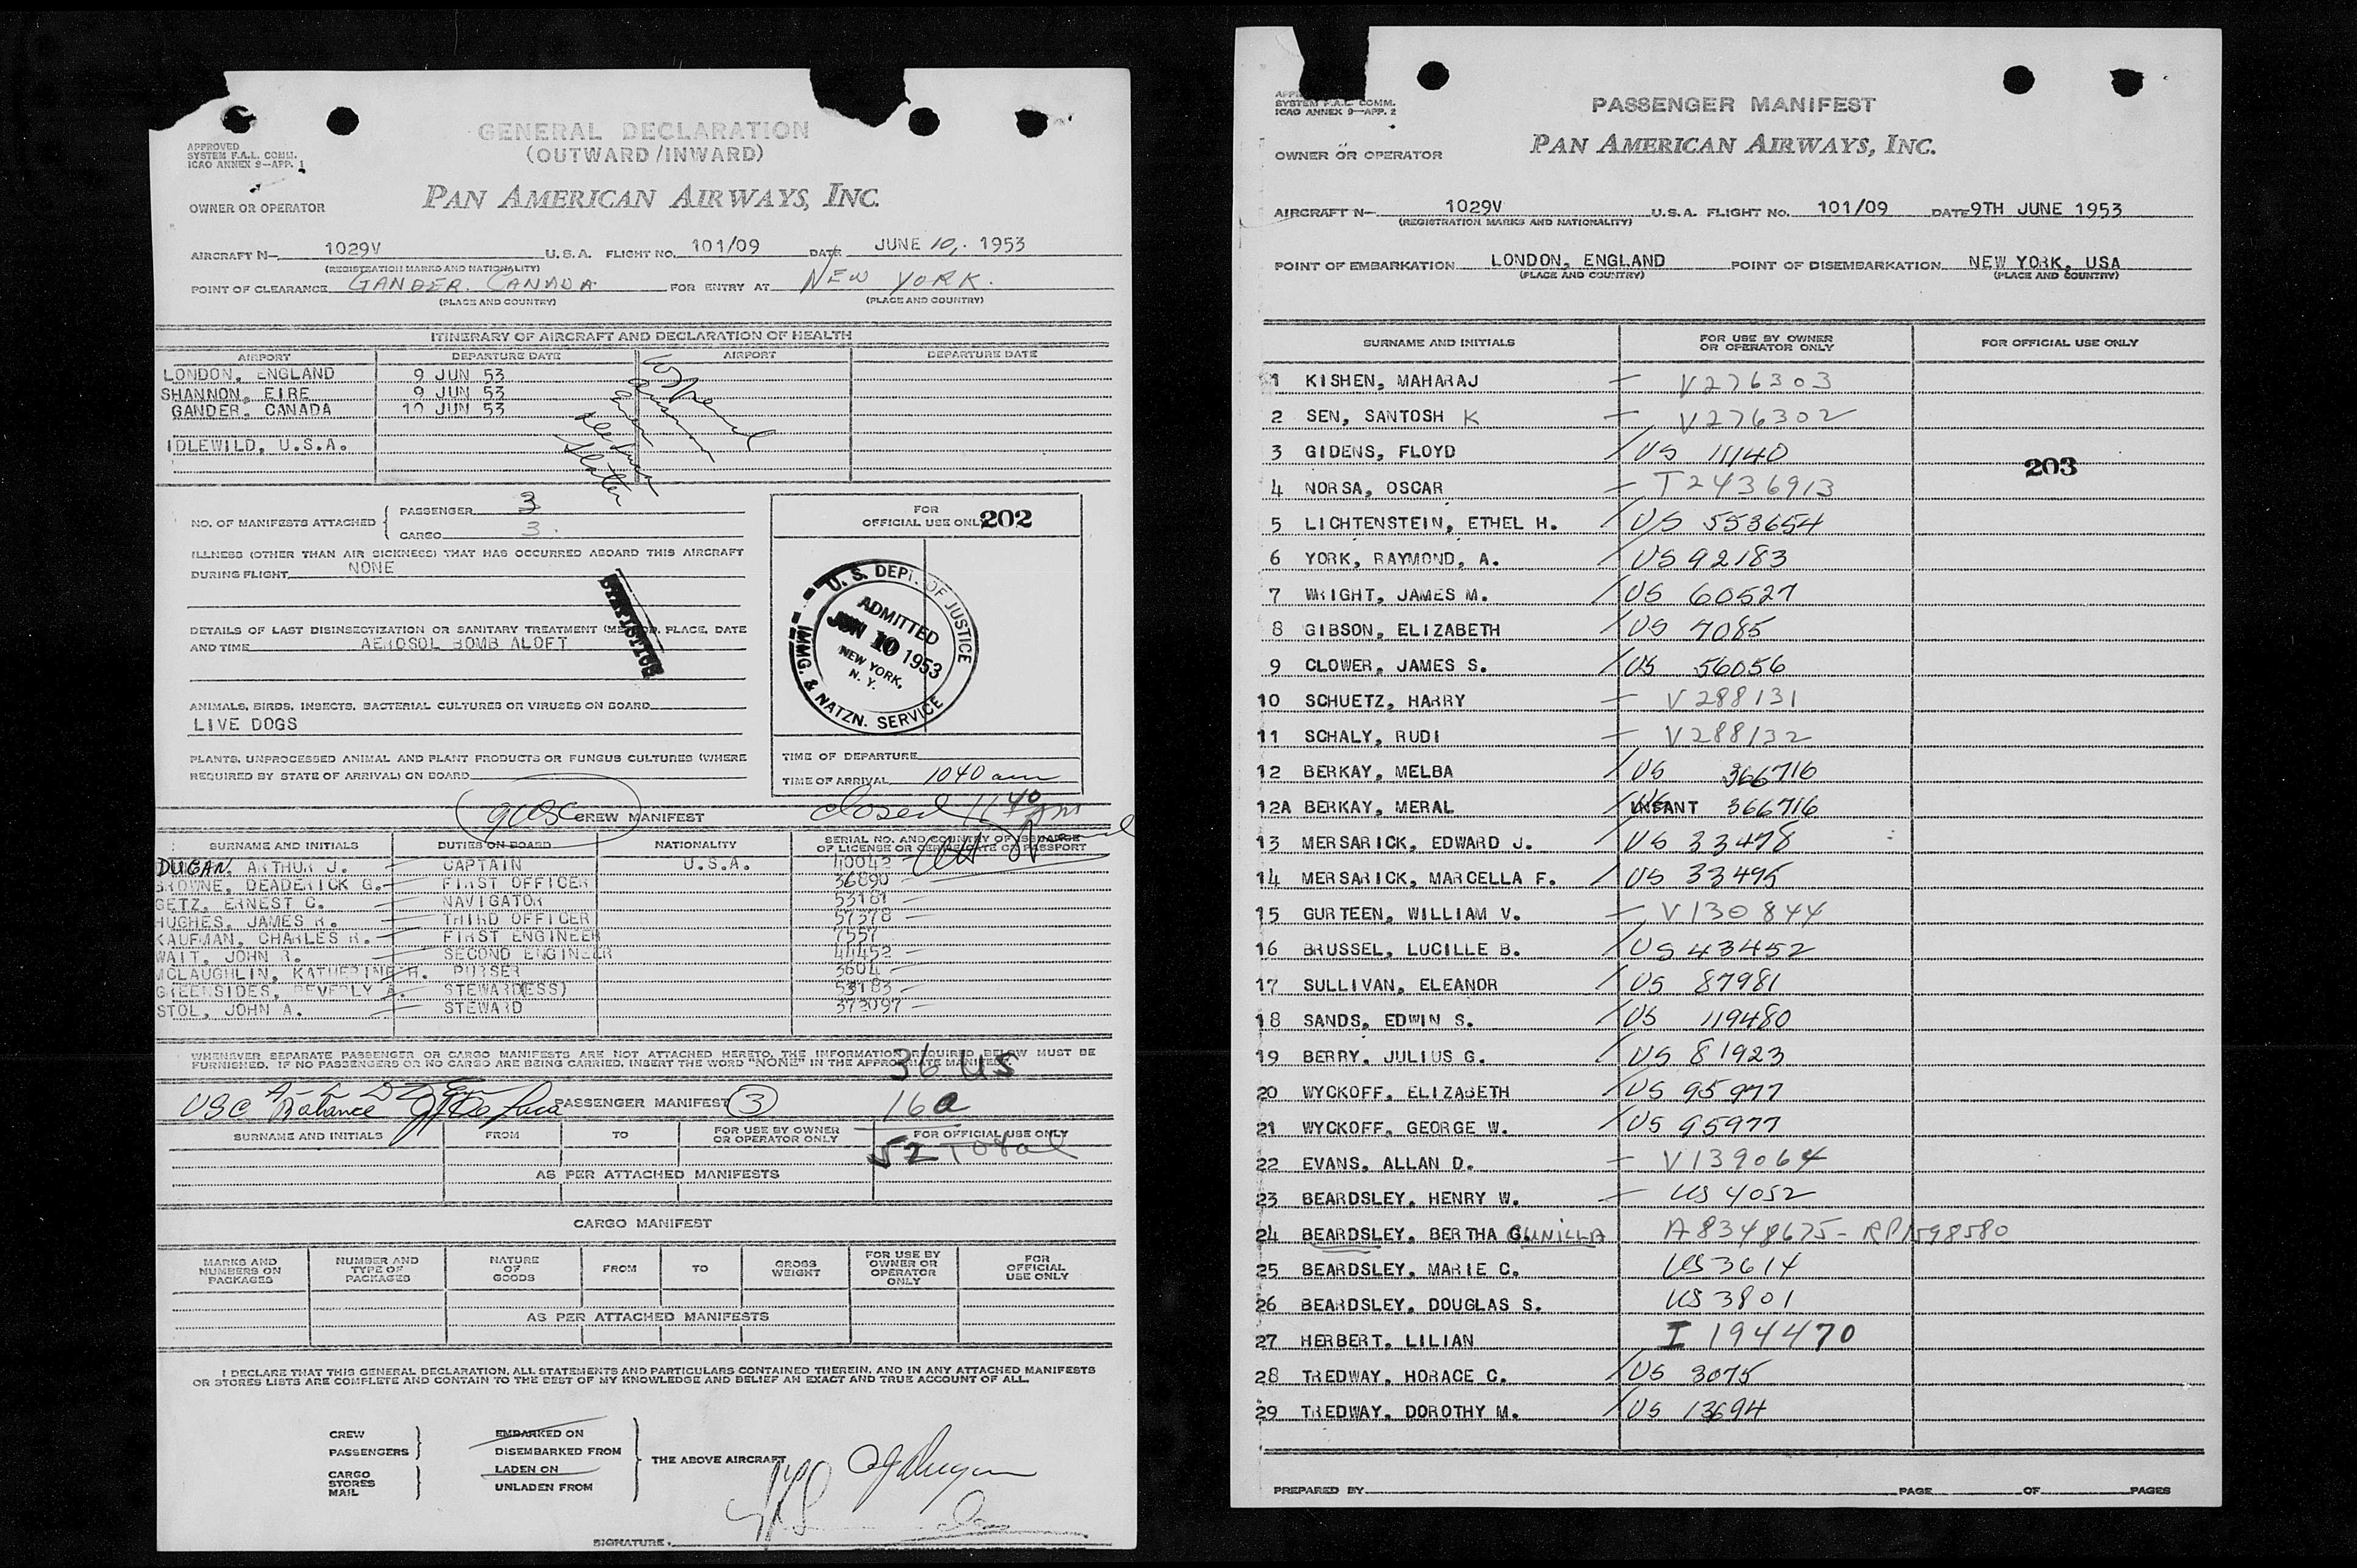 GENERAL DECLARATION
(OUTWARD/INWARD)
APPROVED
SYSTEM F.A.L. COMM.
ICAO ANNEX 9—APP. 1
OWNER OR OPERATOR
PAN AMERICAN AIRWAYS, INC.
AIRCRAFT N— 1029V U.S.A. FLIGHT NO. 101/09 DATE JUNE 10, 1953
(REGISTRATION MARKS AND NATIONALITY)
POINT OF CLEARANCE GANDER. CANADA FOR ENTRY AT NEW YORK.
(PLACE AND COUNTRY) (PLACE AND COUNTRY)
ITINERARY OF AIRCRAFT AND DECLARATION OF HEALTH
AIRPORT DEPARTURE DATE AIRPORT DEPARTURE DATE
LONDON, ENGLAND 9 JUN 53
SHANNON, EIRE 9 JUN 53
GANDER, CANADA 10 JUN 53
IDLEWILD, U.S.A.
NO. OF MANIFESTS ATTACHED
PASSENGER 3
CARGO 3
ILLNESS (OTHER THAN AIR SICKNESS) THAT HAS OCCURRED ABOARD THIS AIRCRAFT
DURING FLIGHT NONE
DETAILS OF LAST DISINSECTIZATION OR SANITARY TREATMENT (METHOD, PLACE, DATE
AND TIME AEROSOL BOMB ALOFT
ANIMALS, BIRDS, INSECTS, BACTERIAL CULTURES OR VIRUSES ON BOARD
LIVE DOGS
PLANTS, UNPROCESSED ANIMAL AND PLANT PRODUCTS OR FUNGUS CULTURES (WHERE
REQUIRED BY STATE OF ARRIVAL) ON BOARD
FOR
OFFICIAL USE ONLY 202
U.S. DEPT. OF JUSTICE
ADMITTED
JUN 10 1953
NEW YORK,
N. Y.
IMMG. & NATZN. SERVICE
TIME OF DEPARTURE
TIME OF ARRIVAL 1040 am
closed 11 40 am
9 USC CREW MANIFEST
SURNAME AND INITIALS DUTIES ON BOARD NATIONALITY SERIAL NO. AND COUNTRY OF ISSUANCE
OF LICENSE OR CERTIFICATE OR PASSPORT
DUGAN, ARTHUR J. CAPTAIN U.S.A. 40042
BROWNE, DEADERICK G. FIRST OFFICER 36890
GETZ, ERNEST C. NAVIGATOR 53181
HUGHES, JAMES R. THIRD OFFICER 57378
KAUFMAN, CHARLES R. FIRST ENGINEER 7557
WAIT, JOHN R. SECOND ENGINEER 44452
MCLAUGHLIN, KATHERINE H. PURSER 3604
GREENSIDES, BEVERLY A. STEWARD(ESS) 53183
STOL, JOHN A. STEWARD 372097
WHENEVER SEPARATE PASSENGER OR CARGO MANIFESTS ARE NOT ATTACHED HERETO, THE INFORMATION REQUIRED BELOW MUST BE
FURNISHED. IF NO PASSENGERS OR NO CARGO ARE BEING CARRIED, INSERT THE WORD "NONE" IN THE APPROPRIATE MANIFEST.
36 US
USC Balance PASSENGER MANIFEST 3 16 a
SURNAME AND INITIALS FROM TO FOR USE BY OWNER
OR OPERATOR ONLY FOR OFFICIAL USE ONLY
52 Total
AS PER ATTACHED MANIFESTS
CARGO MANIFEST
MARKS AND
NUMBERS ON
PACKAGES NUMBER AND
TYPE OF
PACKAGES NATURE
OF
GOODS FROM TO GROSS
WEIGHT FOR USE BY
OWNER OR
OPERATOR
ONLY FOR
OFFICIAL
USE ONLY
AS PER ATTACHED MANIFESTS
I DECLARE THAT THIS GENERAL DECLARATION, ALL STATEMENTS AND PARTICULARS CONTAINED THEREIN, AND IN ANY ATTACHED MANIFESTS
OR STORES LISTS ARE COMPLETE AND CONTAIN TO THE BEST OF MY KNOWLEDGE AND BELIEF AN EXACT AND TRUE ACCOUNT OF ALL
CREW
PASSENGERS
CARGO
STORES
MAIL
EMBARKED ON
DISEMBARKED FROM
LADEN ON
UNLADEN FROM
THE ABOVE AIRCRAFT
AJ Dugan
SIGNATURE
SYSTEM F.A.L. COMM.
ICAO ANNEX 9—APP. 2
PASSENGER MANIFEST
OWNER OR OPERATOR
PAN AMERICAN AIRWAYS, INC.
AIRCRAFT N— 1029V U.S.A. FLIGHT NO. 101/09 DATE 9TH JUNE 1953
(REGISTRATION MARKS AND NATIONALITY)
POINT OF EMBARKATION LONDON, ENGLAND POINT OF DISEMBARKATION NEW YORK, USA
(PLACE AND COUNTRY) (PLACE AND COUNTRY)
SURNAME AND INITIALS FOR USE BY OWNER
OR OPERATOR ONLY FOR OFFICIAL USE ONLY
1 KISHEN, MAHARAJ — V276303
2 SEN, SANTOSH K — V276302
203
3 GIDENS, FLOYD / US 11140
4 NORSA, OSCAR — T2436913
5 LICHTENSTEIN, ETHEL H. / US 553654
6 YORK, RAYMOND, A. / US 92183
7 WRIGHT, JAMES M. / US 60527
8 GIBSON, ELIZABETH / US 7085
9 CLOWER, JAMES S. / US 56056
10 SCHUETZ, HARRY — V288131
11 SCHALY, RUDI — V288132
12 BERKAY, MELBA / US 366716
12A BERKAY, MERAL / INFANT 366716
13 MERSARICK, EDWARD J. / US 33478
14 MERSARICK, MARCELLA F. / US 33495
15 GURTEEN, WILLIAM V. — V130844
16 BRUSSEL, LUCILLE B. / US 43452
17 SULLIVAN, ELEANOR / US 87981
18 SANDS, EDWIN S. / US 119480
19 BERRY, JULIUS G. / US 81923
20 WYCKOFF, ELIZABETH / US 95977
21 WYCKOFF, GEORGE W. / US 95977
22 EVANS, ALLAN D. — V139064
23 BEARDSLEY, HENRY W. — US 4052
24 BEARDSLEY, BERTHA GUNILLA A8348675 - RP1598580
25 BEARDSLEY, MARIE C. US 3614
26 BEARDSLEY, DOUGLAS S. US 3801
27 HERBERT, LILIAN I 194470
28 TREDWAY, HORACE C. / US 3075
29 TREDWAY, DOROTHY M. / US 13694
PREPARED BY PAGE OF PAGES